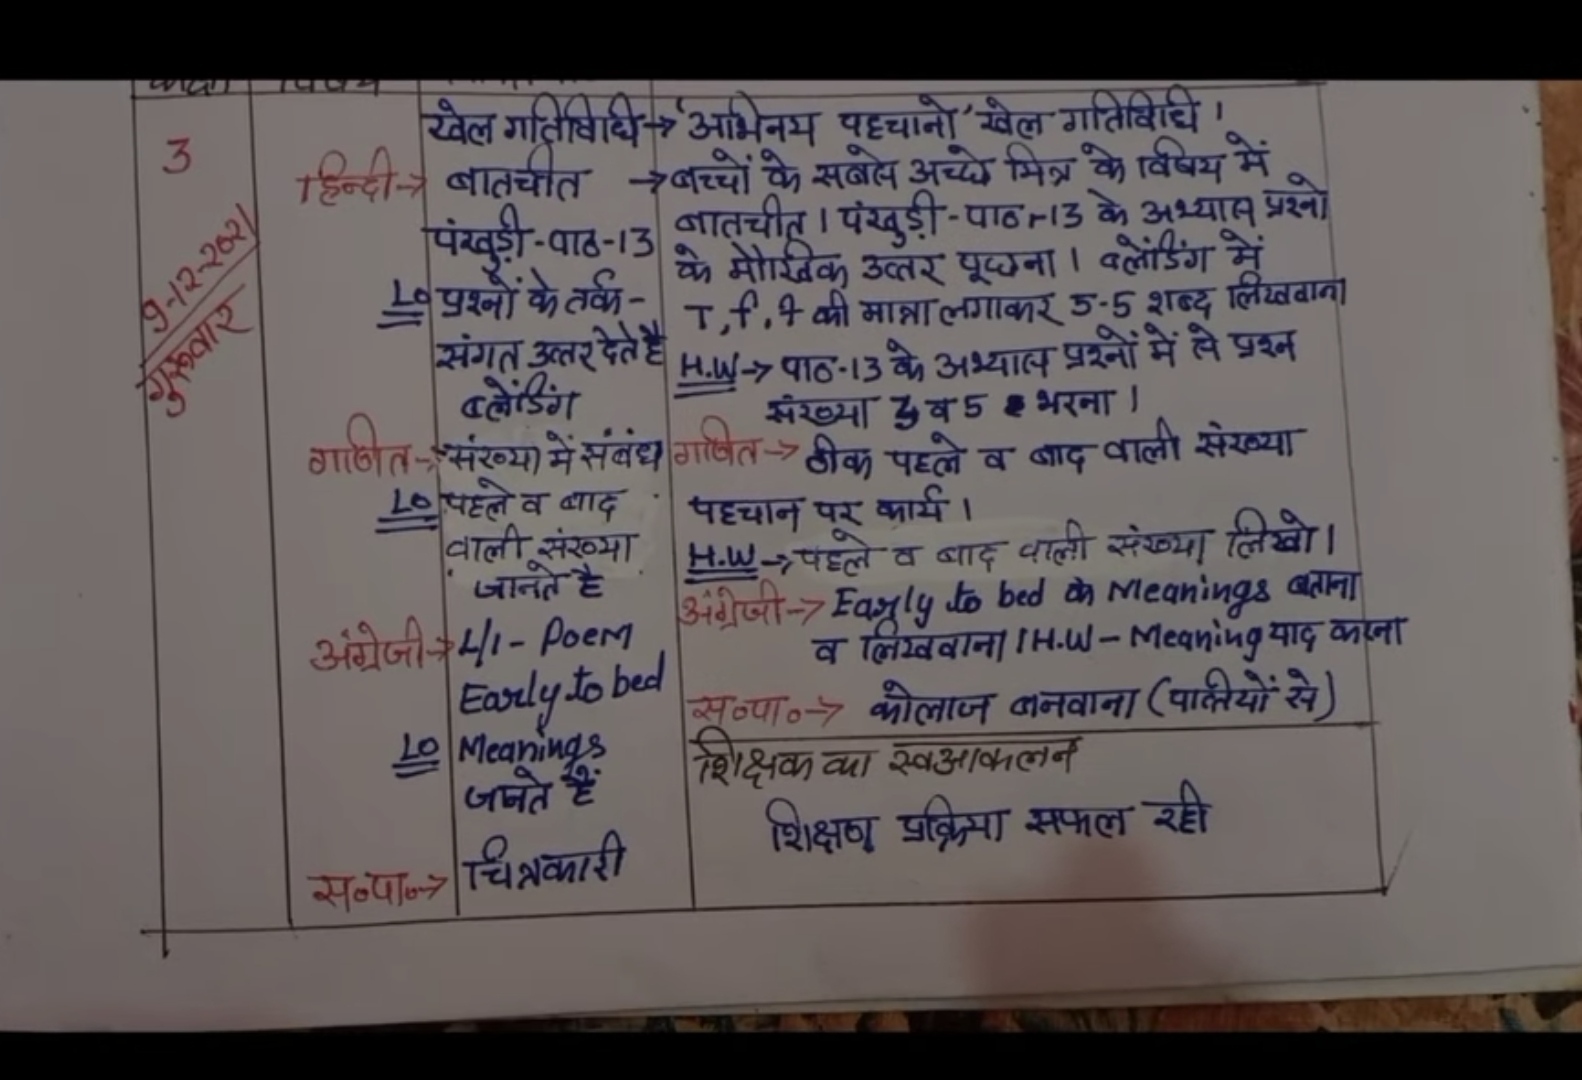 कक्षा विषय
3
9-12-2021
गुरूवार
खेल गतिविधि→ 'अभिनय पहचानो' खेल गतिविधि ।
हिन्दी→ बातचीत → बच्चों के सबसे अच्छे मित्र के विषय में
पंखुड़ी-पाठ-13 बातचीत । पंखुड़ी-पाठ-13 के अभ्यास प्रश्नो
के मौखिक उत्तर पूछना । ब्लेंडिंग में
LO प्रश्नों के तर्क- की मात्रा लगाकर 5-5 शब्द लिखवाना
संगत उत्तर देते है H.W→ पाठ-13 के अभ्यास प्रश्नों में से प्रश्न
ब्लेंडिंग संख्या 3 व 5 भरना ।
गणित→ संख्यो में संबंध गणित→ ठीक पहले व बाद वाली संख्या
LO पहले व बाद पहचान पर कार्य ।
वाली संख्या H.W→ पहले व बाद वाली संख्या लिखो ।
जानते है अंग्रेजी→ Early to bed के Meanings बताना
अंग्रेजी→ 4/1- Poem व लिखवाना । H.W - Meaning याद करना
Early to bed स०पा०→ कोलाज बनवाना (पत्तियों से)
LO Meanings शिक्षक का स्वआकलन
जानते हैं शिक्षण प्रक्रिया सफल रही
स०पा०→ चित्रकारी